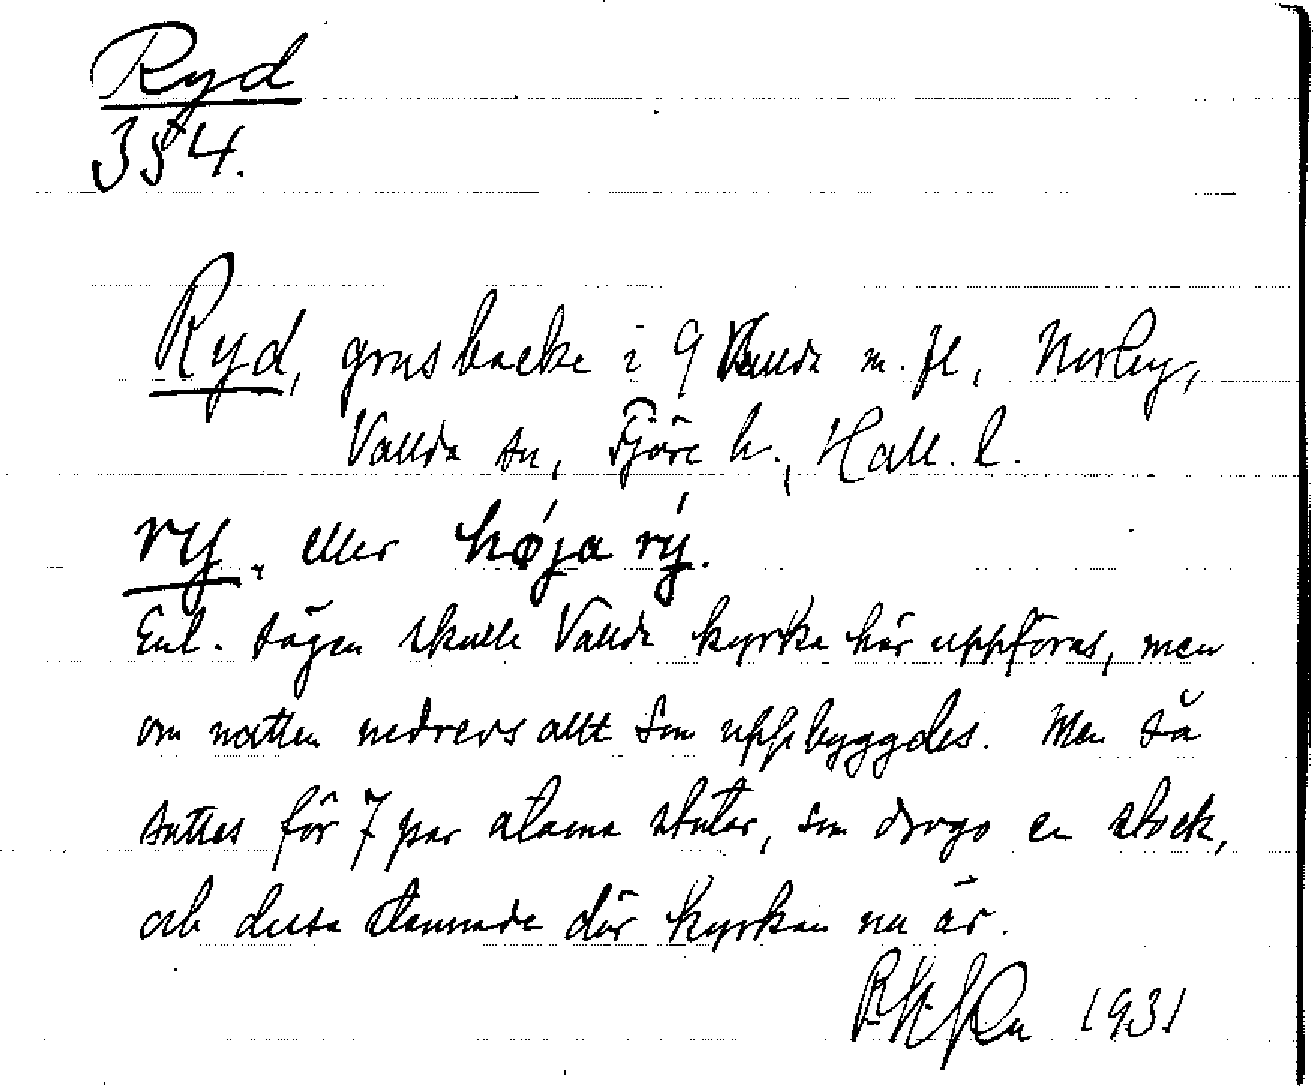 Ryd
354.
Ryd, grusbacke i 9 Vallda m.fl,
Vallda sn, Fjäre h., Hall. l.
ry. eller høja rý.
Enl. sägen skulle Vallda kyrka här uppföras, men
om natten nedrevs allt som uppbyggdes. Men så
sattes för 7 par stutar, som drogo en stock,
och dessa stannade där kyrkan nu är.
1931